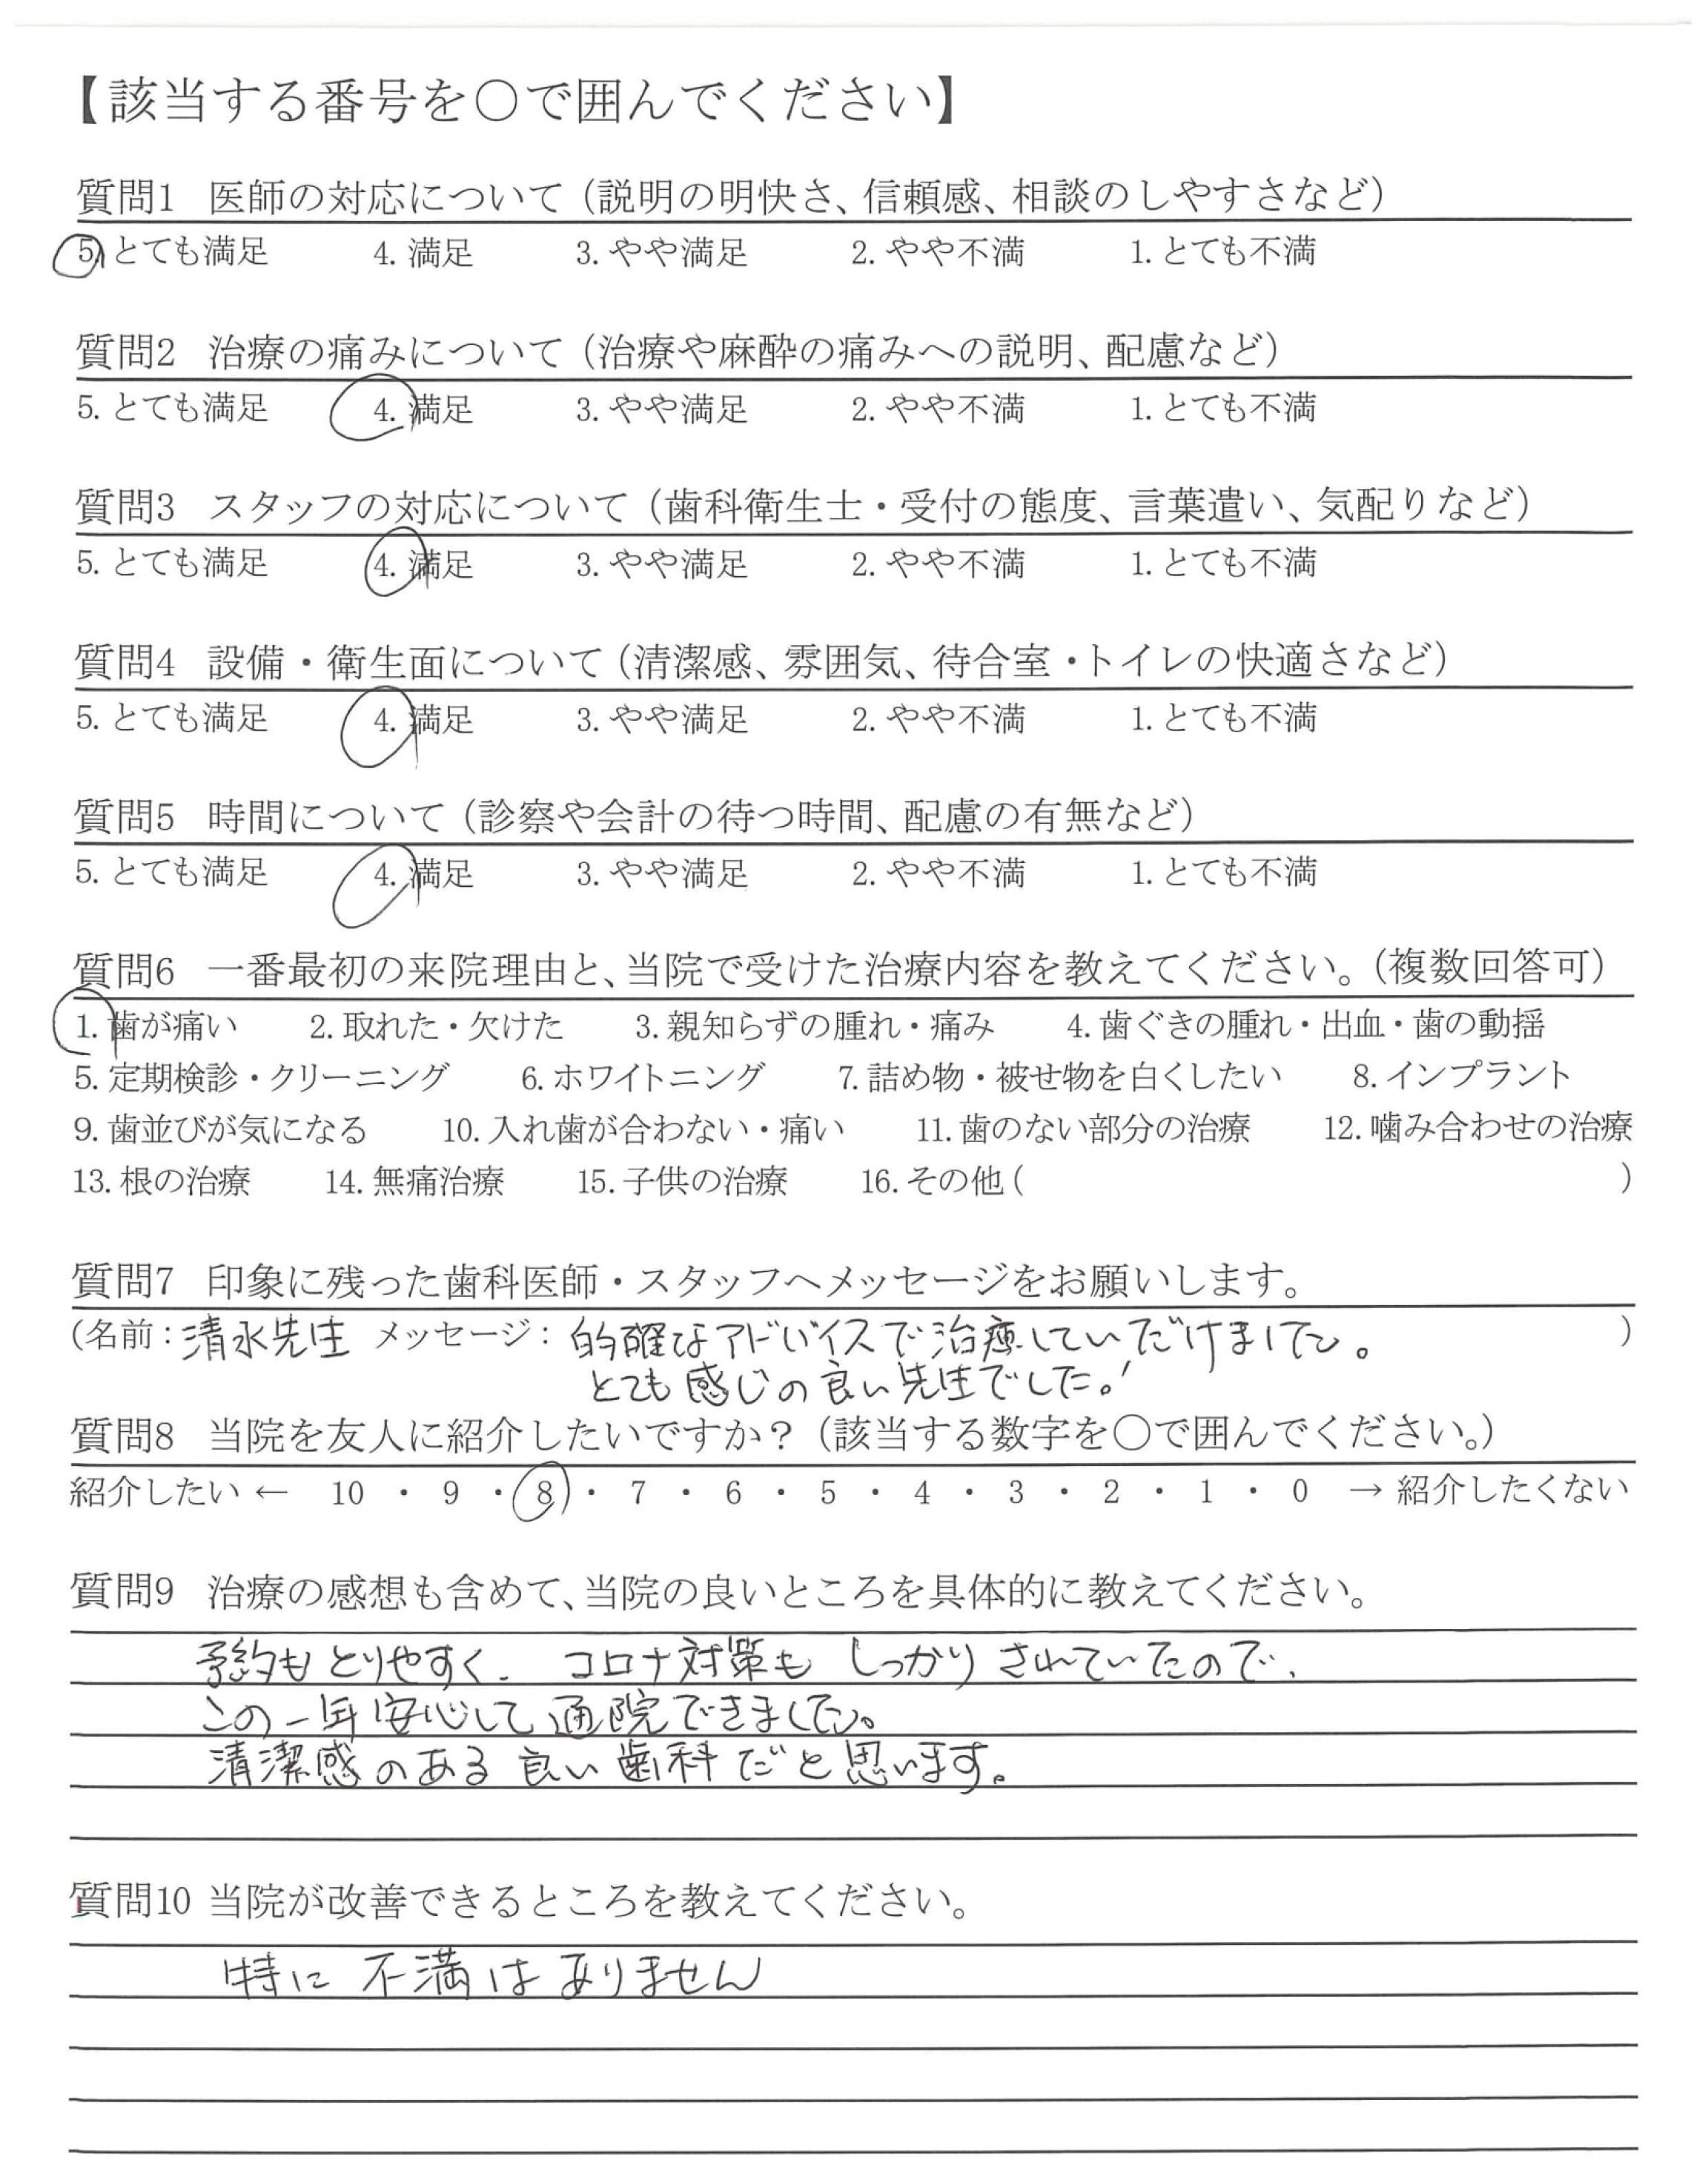 【該当する番号を〇で囲んでください】
質問1 医師の対応について（説明の明快さ、信頼感、相談のしやすさなど）
5. とても満足 4. 満足 3. やや満足 2. やや不満 1. とても不満
質問2 治療の痛みについて（治療や麻酔の痛みへの説明、配慮など）
5. とても満足 4. 満足 3. やや満足 2. やや不満 1. とても不満
質問3 スタッフの対応について（歯科衛生士・受付の態度、言葉遣い、気配りなど）
5. とても満足 4. 満足 3. やや満足 2. やや不満 1. とても不満
質問4 設備・衛生面について（清潔感、雰囲気、待合室・トイレの快適さなど）
5. とても満足 4. 満足 3. やや満足 2. やや不満 1. とても不満
質問5 時間について（診察や会計の待つ時間、配慮の有無など）
5. とても満足 4. 満足 3. やや満足 2. やや不満 1. とても不満
質問6 一番最初の来院理由と、当院で受けた治療内容を教えてください。（複数回答可）
1. 歯が痛い 2. 取れた・欠けた 3. 親知らずの腫れ・痛み 4. 歯ぐきの腫れ・出血・歯の動揺
5. 定期検診・クリーニング 6. ホワイトニング 7. 詰め物・被せ物を白くしたい 8. インプラント
9. 歯並びが気になる 10. 入れ歯が合わない・痛い 11. 歯のない部分の治療 12. 噛み合わせの治療
13. 根の治療 14. 無痛治療 15. 子供の治療 16. その他（ ）
質問7 印象に残った歯科医師・スタッフへメッセージをお願いします。
（名前：清水先生 メッセージ：的確なアドバイスで治療していただけました。 ）
とても感じの良い先生でした。!
質問8 当院を友人に紹介したいですか？（該当する数字を〇で囲んでください。）
紹介したい ← 10 ・ 9 ・ 8 ・ 7 ・ 6 ・ 5 ・ 4 ・ 3 ・ 2 ・ 1 ・ 0 → 紹介したくない
質問9 治療の感想も含めて、当院の良いところを具体的に教えてください。
予約もとりやすく、コロナ対策もしっかりされていたので、
この一年安心して通院できました。
清潔感のある良い歯科だと思います。
質問10 当院が改善できるところを教えてください。
特に不満はありません